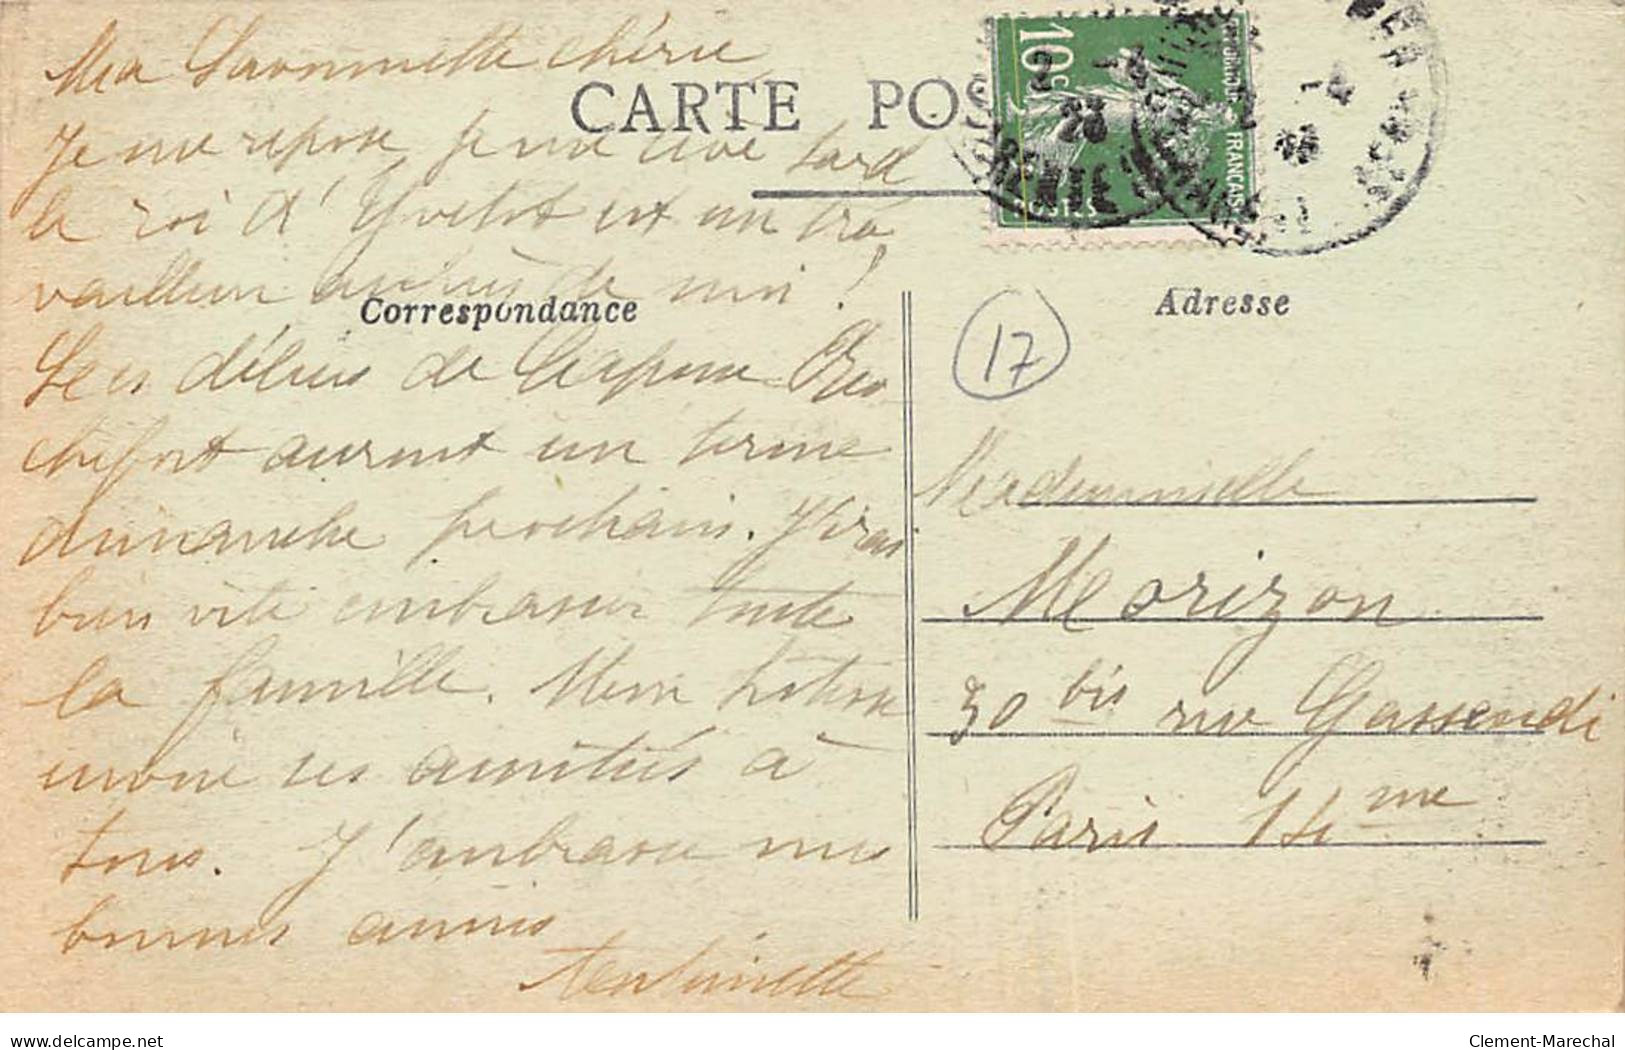 Ma Savonnette chérie
CARTE POS
Je me repose, je me lève tard
le roi d'Yvetot est un tra
vailleur auprès de moi !
Correspondance
Les délices de Capoue Ro
chefort auront un terme
dimanche prochain. J'irai
bien vite embrasser toute
la famille. Mon
envoie ses amitiés à
tous. J'embrasse mes
bonnes amies
Antoinette
10c
POSTES
FRANÇAISE
23
Adresse
17
Mademoiselle
Morizon
30 bis rue Gassendi
Paris 14me
delcampe.net
Clement-Marechal